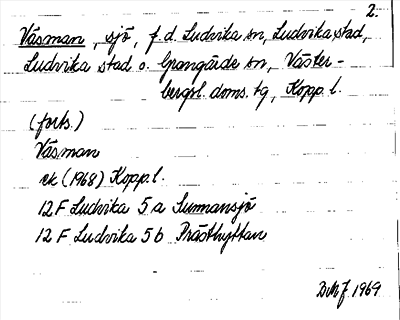 2.
Väsman, sjö, f.d. Ludvika sn, Ludvika stad,
Ludvika stad o. Grangärde sn, Väster-
bergsl. doms. tg, Kopp. l.
(forts.)
Väsman
ek (1968) Kopp. l.
12 F Ludvika 5 a Sunnansjö
12 F Ludvika 5 b Prästhyttan
1969